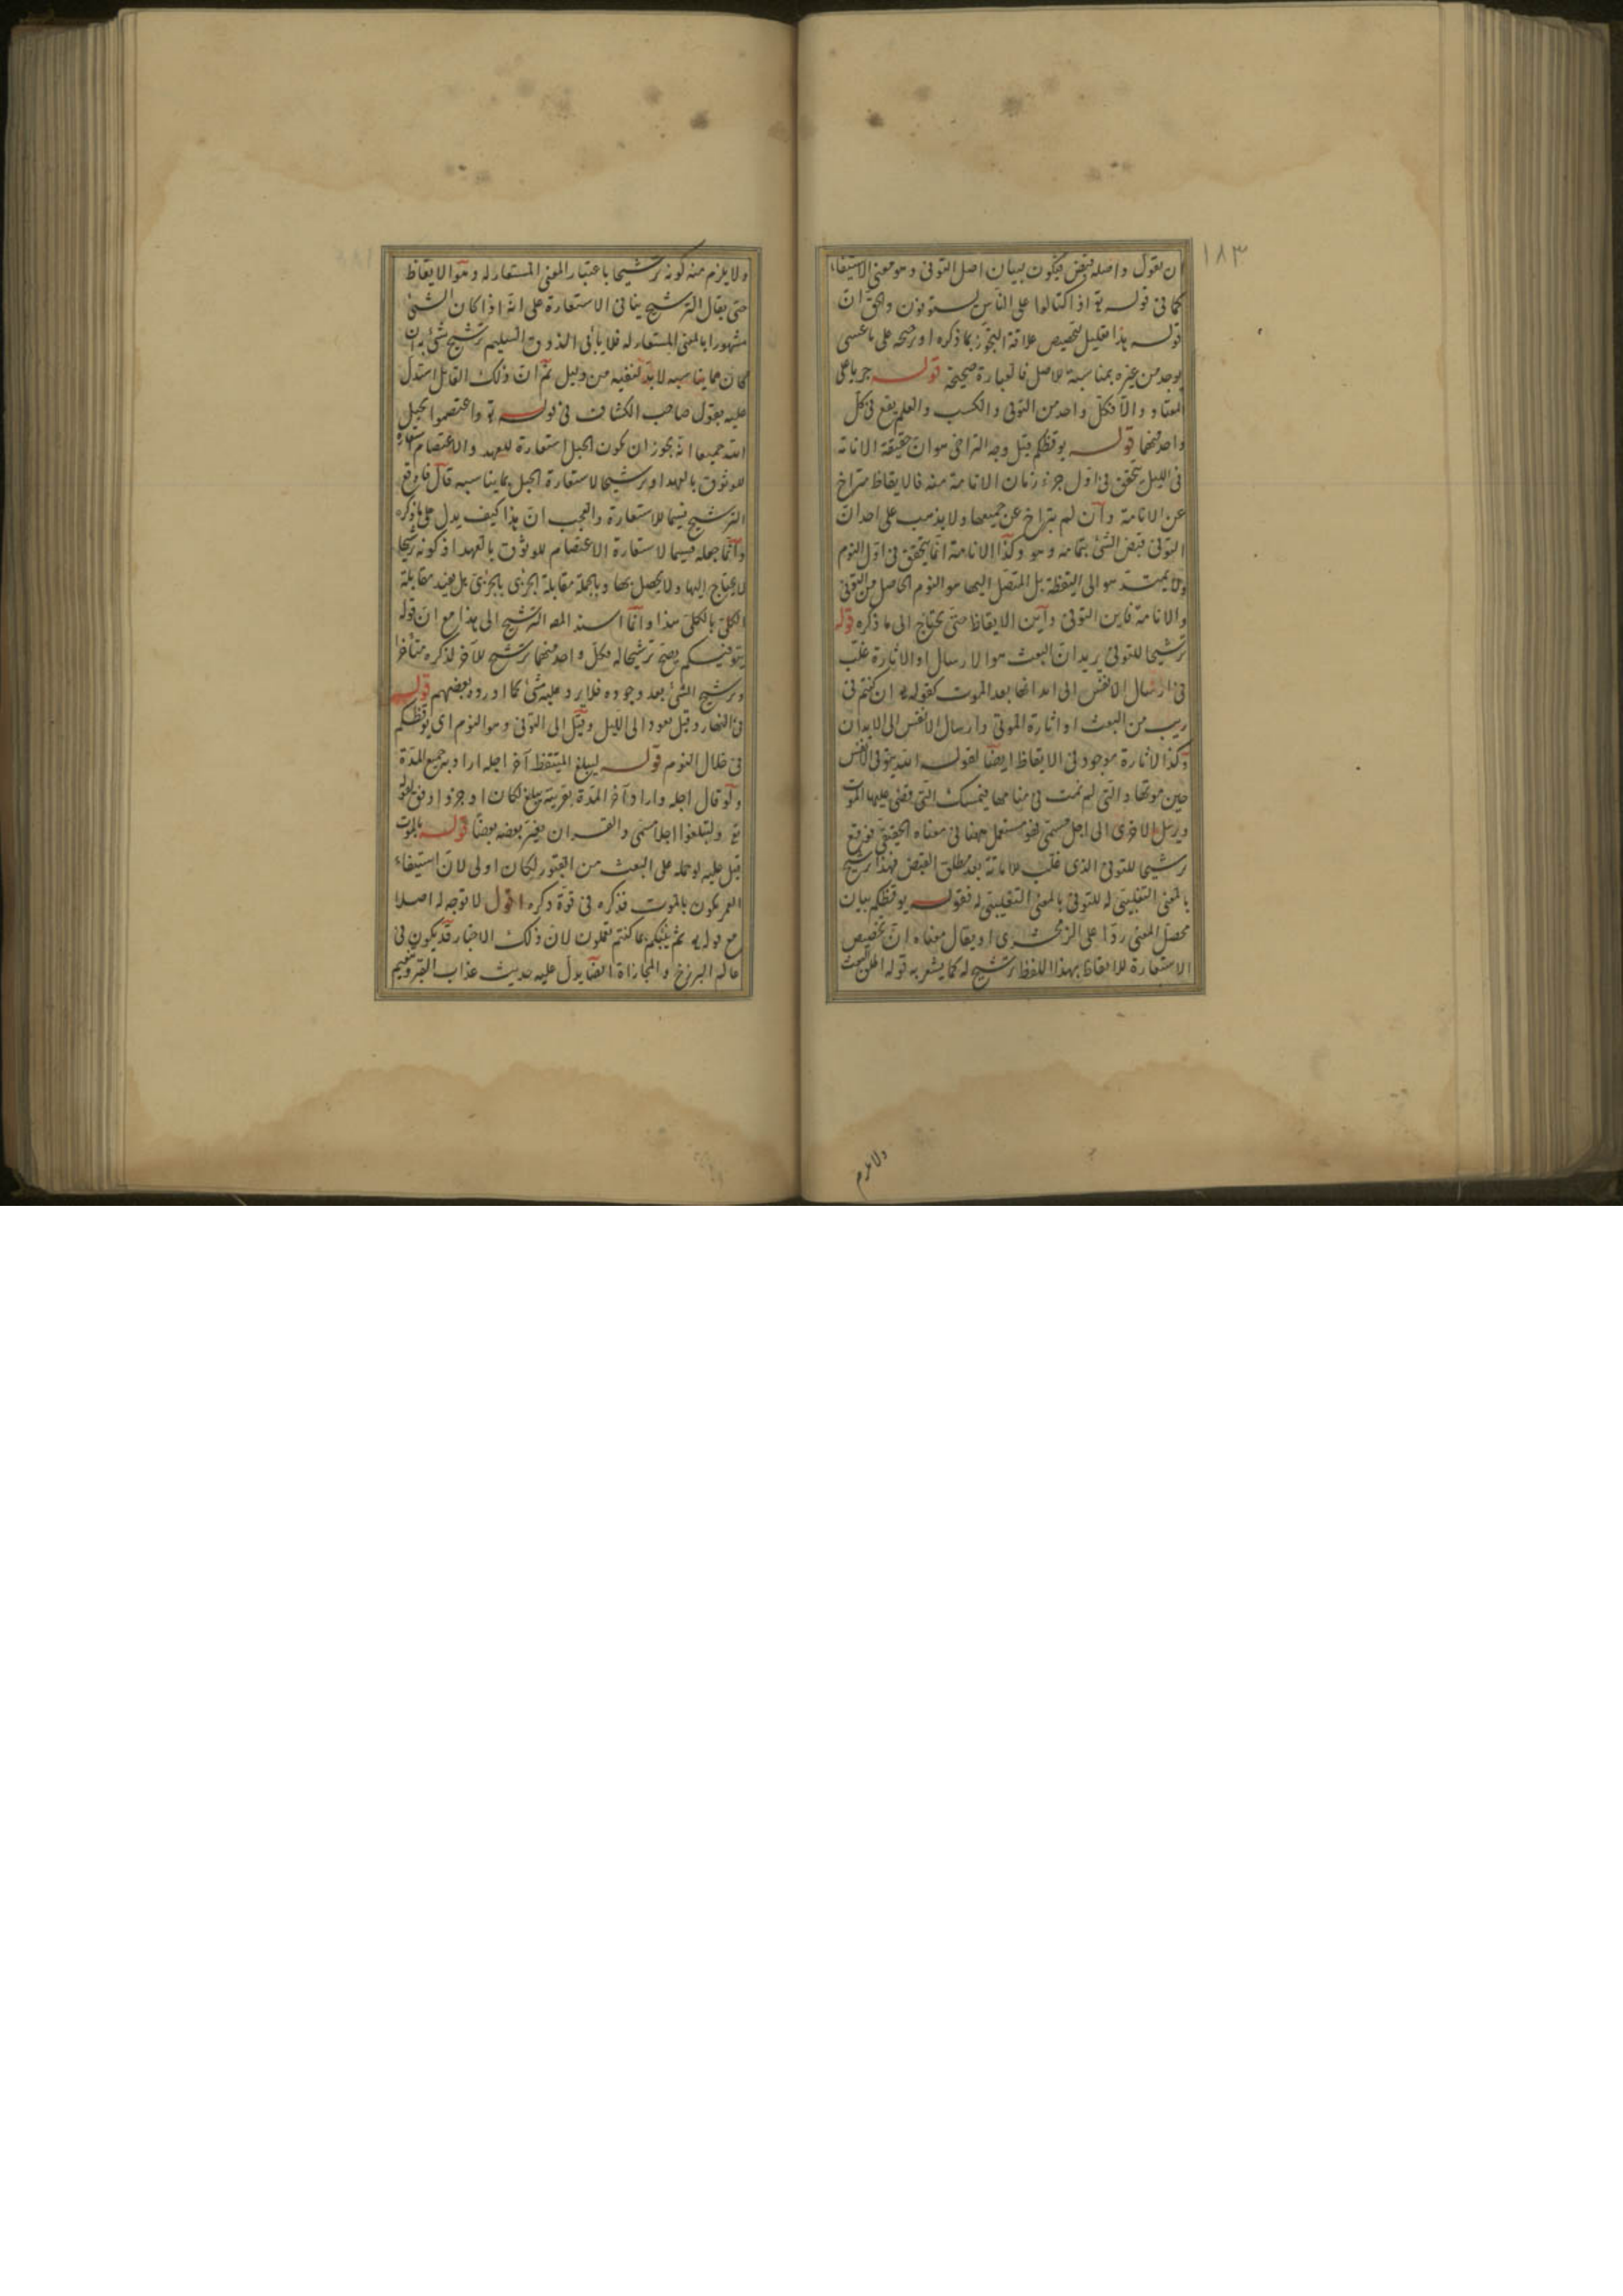 ١٨٣
ان يقول واصله قبض فيكون بيان اصل التوفى وهو معنى الاستيفاء
كما فى قوله تع اذا اكتالوا على الناس يستوفون والحق ان
قوله هذا تعليل لتخصيص علاقة التجوز بما ذكره او رجحه على ما عسى
يوجد من غيره بمناسبة للاصل فالعبارة صحيحة قوله جريا على
المعتاد والا فكل واحد من التوفى والكسب والعلم يقع فى كل
واحد منهما قوله يوقظكم قيل وجه التراخى هو ان حقيقة الانامة
فى الليل يتحقق فى اول جزء زمان الانامة منه فالايقاظ متراخ
عن الانامة وان لم يتراخ عن جميعها ولا يذهب على احد ان
التوفى قبض الشئ بتمامه وهو وكذا الانامة انما يتحقق فى اول النوم
ولا يمتد هو الى اليقظة بل المتصل اليها هو النوم الحاصل من التوفى
والانامة فاين التوفى واين الايقاظ حتى يحتاج الى ما ذكره قوله
ترشيحا للتوفى يريد ان البعث هو الارسال او الاثارة غلب
فى ارسال الانفس الى ابدانها بعد الموت كقوله تع ان كنتم فى
ريب من البعث او اثارة الموتى وارسال الانفس الى الابدان
وكذا الاثارة موجود فى الايقاظ ايضا لقوله الله يتوفى الانفس
حين موتها والتى لم تمت فى منامها فيمسك التى قضى عليها الموت
ويرسل الاخرى الى اجل مسمى فهو مستعمل ههنا فى معناه الحقيقى فوقع
ترشيحا للتوفى الذى غلب للاماتة بعد مطلق القبض فهذا ترشيح
بالمعنى التغليبى له للتوفى بالمعنى التغليبى له فقوله يوقظكم بيان
محصل المعنى ردا على الزمخشرى او يقال معناه ان تخصيص
الاستعارة للايقاظ بهذا اللفظ ترشيح له كما يشعر به قوله اطلق البعث
ولا يلزم
ولا يلزم منه كونه ترشيحا باعتبار المعنى المستعار له وهو الايقاظ
حتى يقال الترشيح ينافى الاستعارة على انه اذا كان الشئ
مشهورا بالمعنى المستعار له فلا يأبى الذوق السليم ترشيح شئ به ان
كان مما يناسبه لا بد لنفيه من دليل ثم ان ذلك القائل استدل
عليه بقول صاحب الكشاف فى قوله تع واعتصموا بحبل
الله جميعا انه يجوز ان يكون الحبل استعارة للعهد والاعتصام استعارة
للوثوق بالعهد او ترشيحا لاستعارة الحبل بما يناسبه قال فاوقع
الترشيح قسيما للاستعارة والعجب ان هذا كيف يدل على ما ذكره
وانما جعله قسيما لاستعارة الاعتصام للوثوق بالعهد اذ كونه ترشيحا
لا يحتاج اليها ولا يحصل بها وبالجملة مقابلة الجزئى بالجزئى بل يفيد مقابلة
الكلى بالكلى هذا وانما اسند المص الترشيح الى هذا مع ان قوله
يتوفيكم يصح ترشيحا له فكل واحد منهما ترشيح للاخر لذكره متأخرا
وترشيح الشئ بعد وجوده فلا يرد عليه شئ كما اورده بعضهم قوله
فى النهار وقيل يعود الى الليل وقيل الى التوفى وهو النوم اى يوقظكم
فى خلال النوم قوله ليبلغ المتيقظ آخر اجله اراد به جميع المدة
ولو قال اجله واراد آخر المدة بقرينة يبلغ لكان اوجز واوفق لقوله
تع ولتبلغوا اجلا مسمى والقرآن يفسر بعضه بعضا قوله بالموت
قيل عليه لو حمله على البعث من القبور لكان اولى لان استيفاء
العمر يكون بالموت فذكره فى قوة ذكره اقول لا توجه له اصلا
مع قوله تع ثم ينبئكم بما كنتم تعملون لان ذلك الاخبار قد يكون فى
عالم البرزخ والمجازاة ايضا يدل عليه حديث عذاب القبر ونعيمه